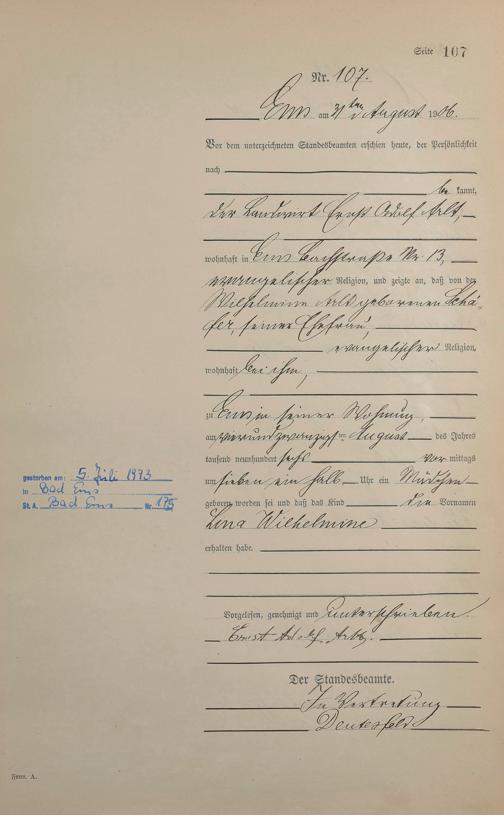 Seite 107
Nr. 107.
Ems am 31ten August 1906.
Vor dem unterzeichneten Standesbeamten erschien heute, der Persönlichkeit
nach
be kannt,
der Landwirt Ernst Adolf Arlt,
wohnhaft in Ems Bachstraße Nr. 13,
evangelischer Religion, und zeigte an, daß von der
Wilhelmine Arlt geborenen Schä-
fer, seiner Ehefrau,
evangelischer Religion,
wohnhaft bei ihm,
zu Ems in seiner Wohnung,
am vierundzwanzigsten August des Jahres
tausend neunhundert sechs vor mittags
um sieben ein halb Uhr ein Mädchen
geboren worden sei und daß das Kind die Vornamen
Lina Wilhelmine
erhalten habe.
Vorgelesen, genehmigt und unterschrieben
Ernst Adolf Arlt.
Der Standesbeamte.
In Vertretung
gestorben am: 5. Juli 1973
in Bad Ems
St. A. Bad Ems Nr. 175
Form. A.